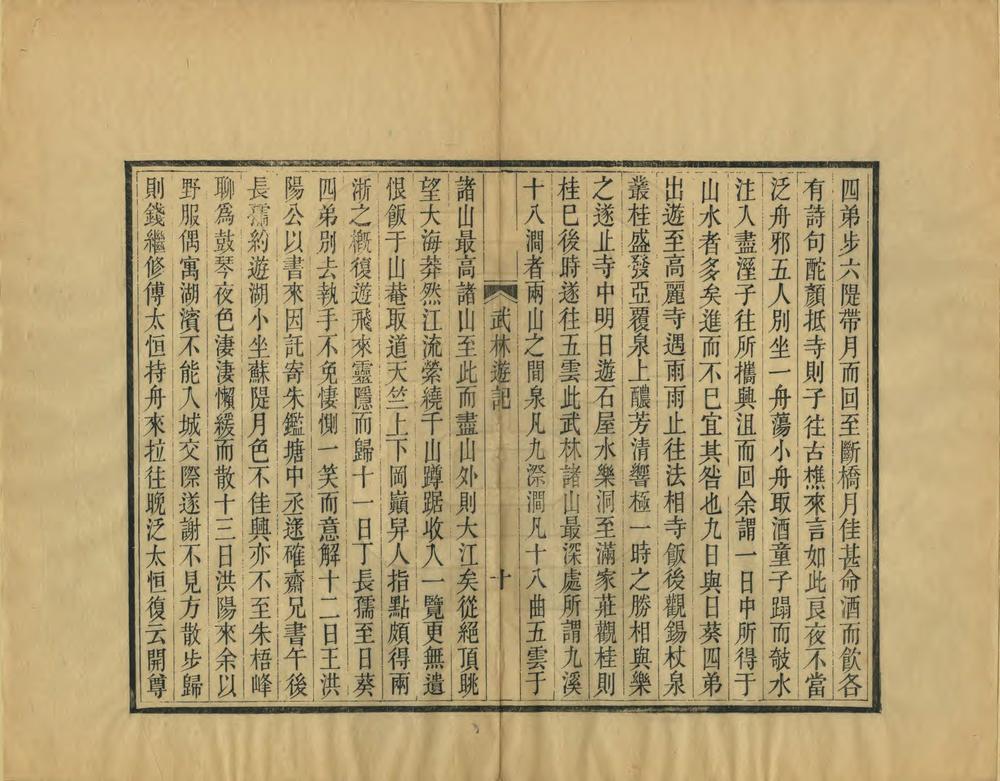 四弟步六隄帶月而回至斷橋月佳甚命酒而飲各
有詩句酡顏抵寺則子往古樵來言如此良夜不當
泛舟邪五人別坐一舟蕩小舟取酒童子蹋而攲水
注入盡溼子往所攜興沮而回余謂一日中所得于
山水者多矣進而不巳宜其咎也九日與日葵四弟
出遊至高麗寺遇雨雨止往法相寺飯後觀錫杖泉
叢桂盛發亞覆泉上醲芳清響極一時之勝相與樂
之遂止寺中明日遊石屋水樂洞至滿家莊觀桂則
桂巳後時遂往五雲此武林諸山最深處所謂九溪
十八澗者兩山之間泉凡九深澗凡十八曲五雲于
武林遊記
十
諸山最高諸山至此而盡山外則大江矣從絕頂眺
望大海莽然江流縈繞千山蹲踞收入一覽更無遺
恨飯于山菴取道天竺上下岡巔舁人指點頗得兩
浙之槪復遊飛來靈隱而歸十一日丁長孺至日葵
四弟別去執手不免悽惻一笑而意解十二日王洪
陽公以書來因託寄朱鑑塘中丞逯確齋兄書午後
長孺約遊湖小坐蘇隄月色不佳興亦不至朱梧峰
聊爲鼓琴夜色淒淒懶緩而散十三日洪陽來余以
野服偶寓湖濱不能入城交際遂謝不見方散步歸
則錢繼修傅太恒持舟來拉往晚泛太恒復云開尊